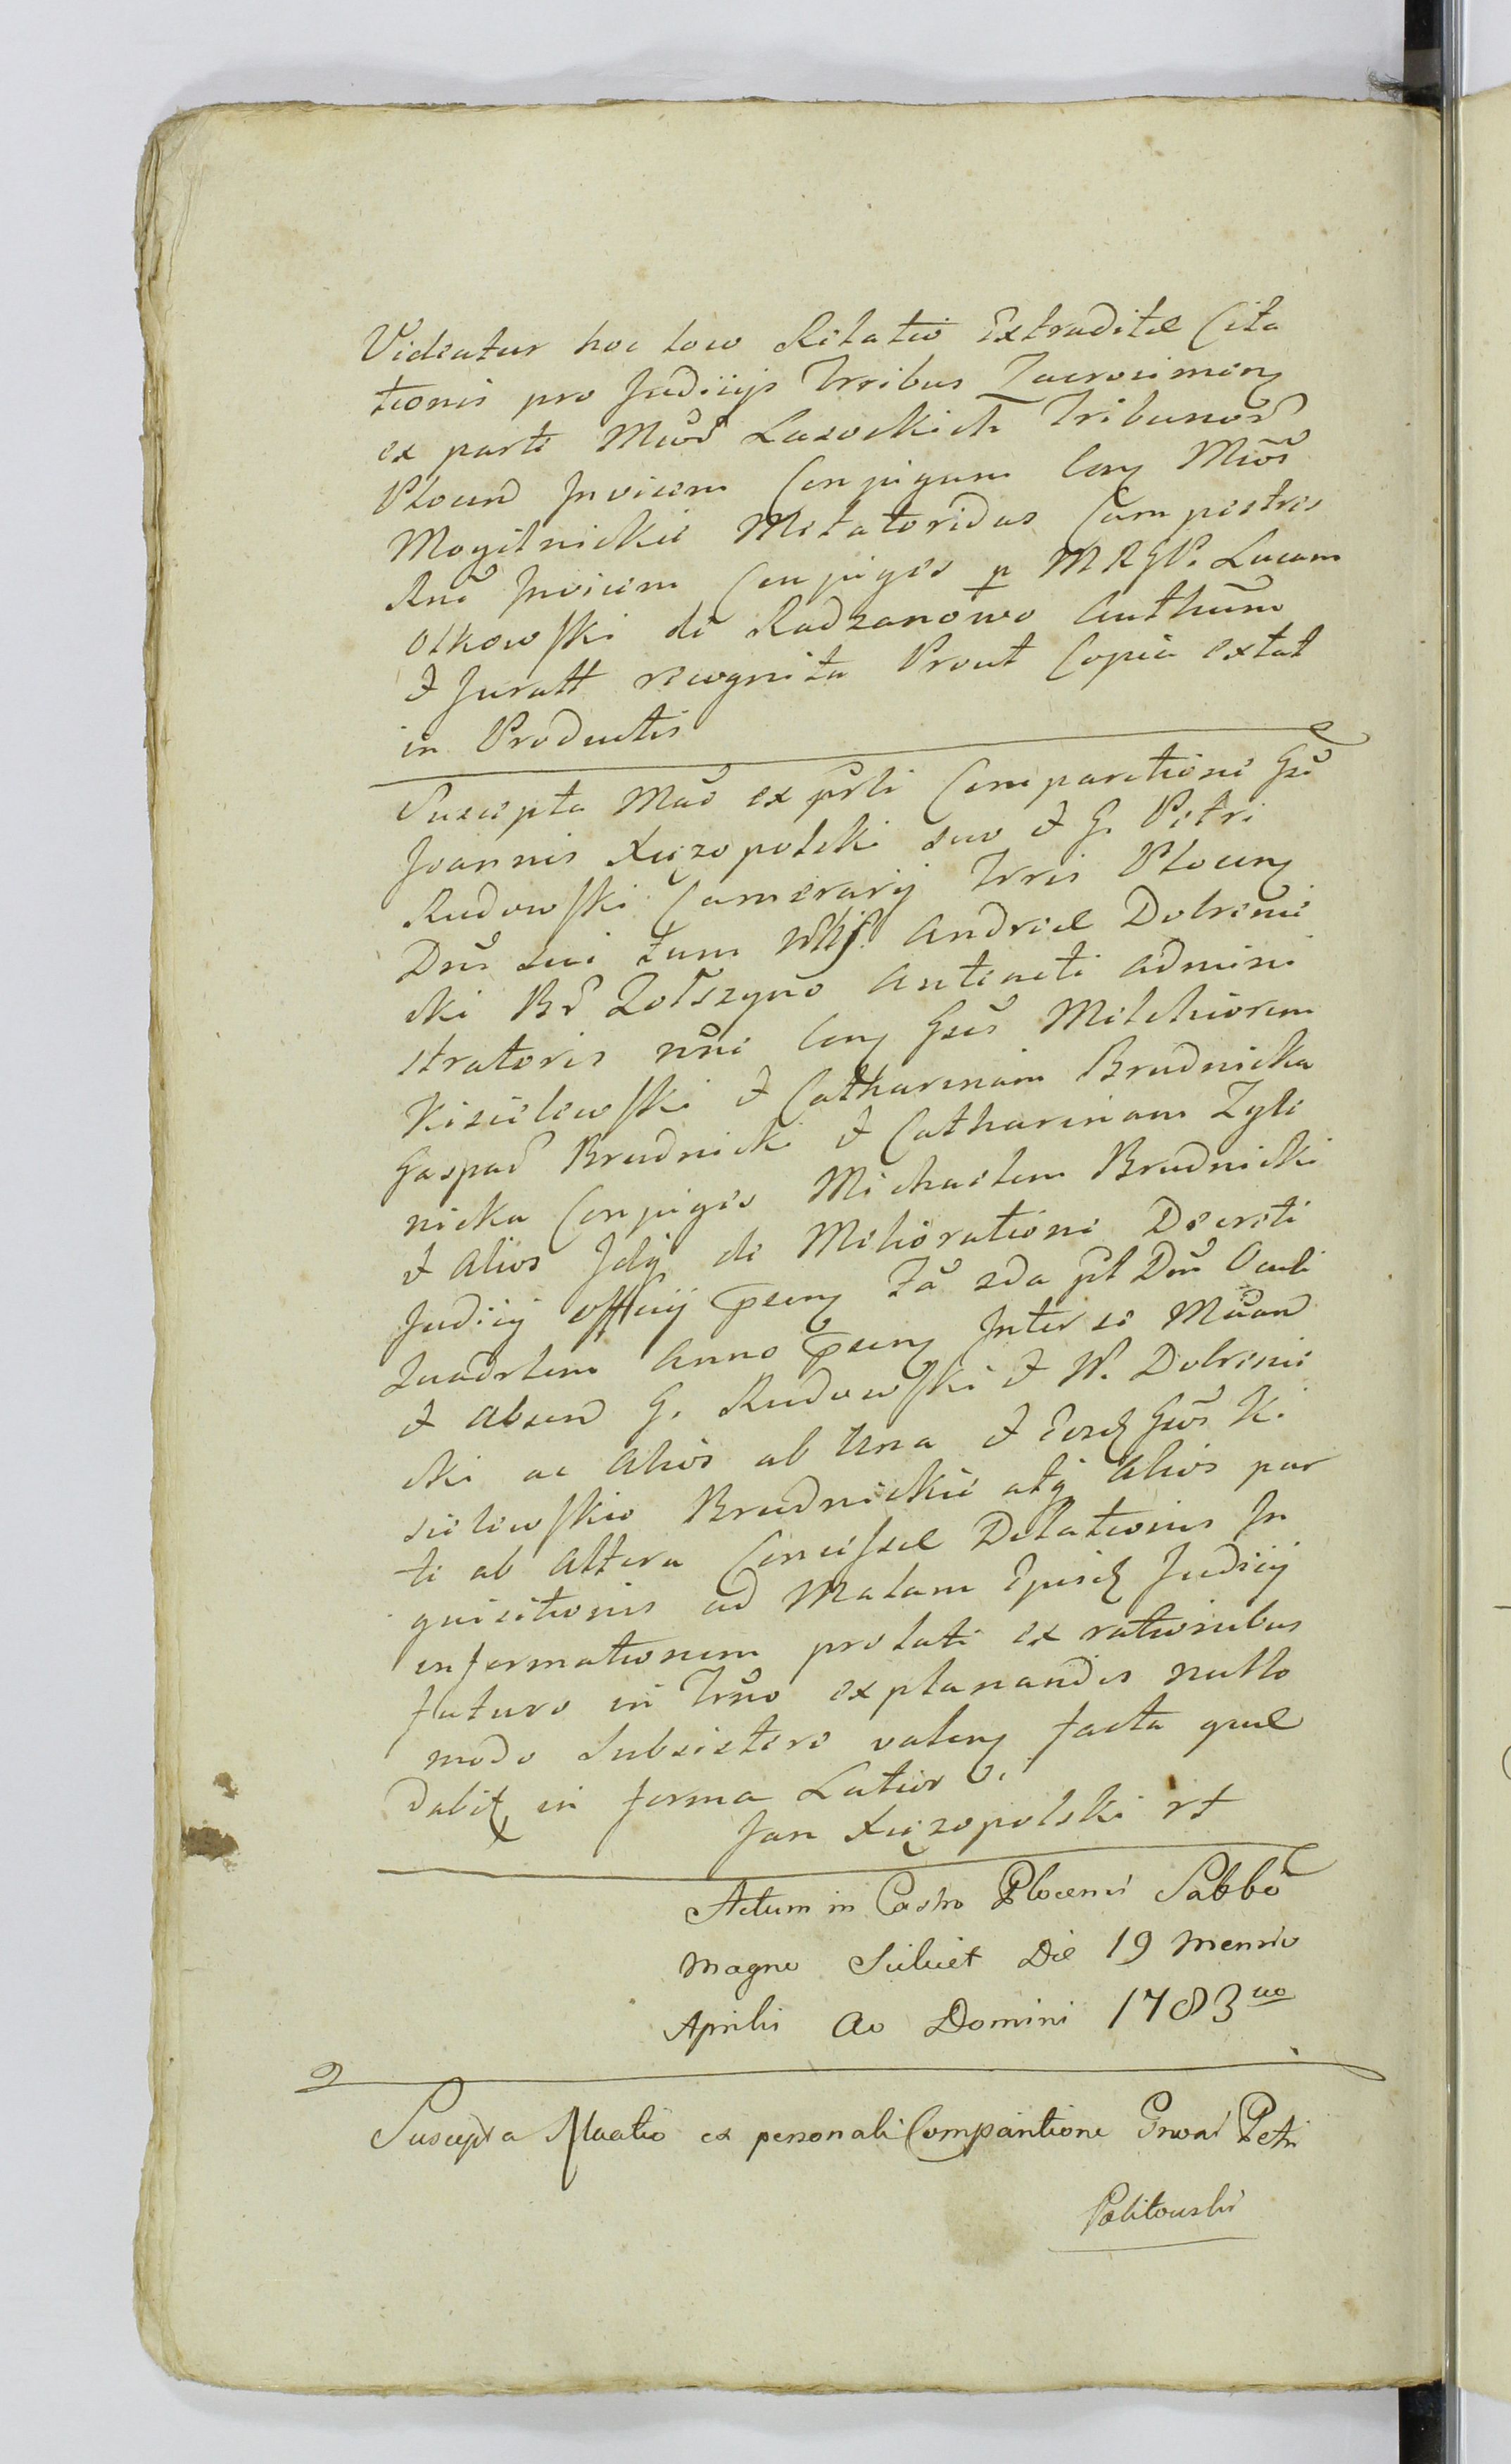 Videatur hoc loco Relatio Extraditæ Cita
tionis pro Judicijs Trribus Zacrocimen
ex parte Mcor Lasockich Tribunor
Plocen Invicem Conjugum Con Mcos
Mogilnickie Metatoridas Campestres
Rni Invicem Conjuges p MRGP. Lucam
Olkowski de Radzanowo Authum
et Juratt recognita Prout Copia extat
in Productis
Suscepta Mao ex psli Comparitione Gsi
Joannis Xięzopolski suo et G. Petri
Rudowski Camerarij Trris Plocen
Dni sui tum Andreæ Dobrzeni
cki Bd Zolszyno Anteacti Admini
stratoris nni Con Gsos Melchiorem
Kisielewski et Catharinam Brudnicka
Gaspad Brudnicki et Catharinam Zyli
nicka Conjuges Michaelem Brudnicki
et alios Jdq de Melioratione Decreti
Judicij Officij psen Fa 2da pt Dni Oculi
Quadrlem Anno psen Inter se Mand
et absend G. Rudowski et W. Dobrzeni
cki ac alios ab Una et Eosd Gsos Ki
sielewskie Brudnickie atq alios par
te ab Altera Concissæ Delationis In
quisitionis ad Malam Ejusd Judicij
informationem prolati ex rationibus
futuro in Trmo explanandis nullo
modo Subsistere valen facta quæ
dabit in forma Latior
Jan Xięzopolski
Actum in Castro Plocensi Sabbo
Magno Scilicet Die 19 Mensis
Aprilis Ao Domini 1783
Suscepta Maatio ex personali Comparitione Petri
Politowski